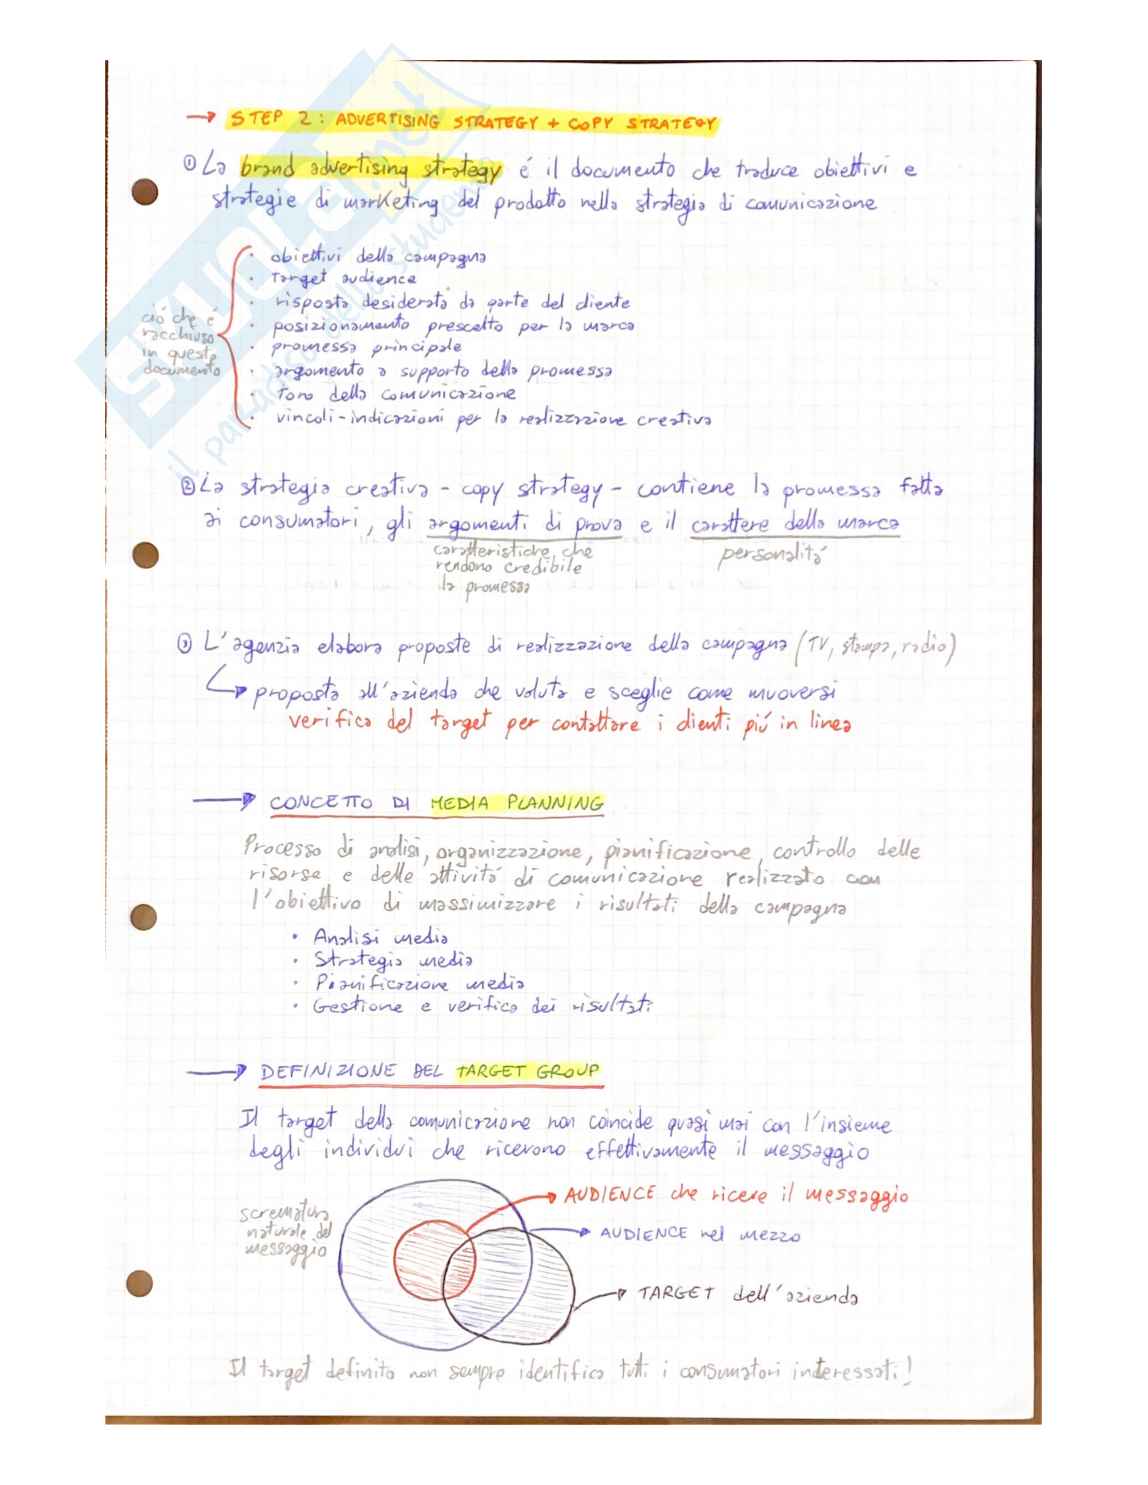 → STEP 2: ADVERTISING STRATEGY + COPY STRATEGY
① La brand advertising strategy é il documento che traduce obiettivi e
strategie di marketing del prodotto nella strategia di comunicazione
ciò che é
racchiuso
in questo
documento
• obiettivi della campagna
• target audience
• risposta desiderata da parte del cliente
• posizionamento prescelto per la marca
• promessa principale
• argomento a supporto della promessa
• tono della comunicazione
• vincoli-indicazioni per la realizzazione creativa
② La strategia creativa - copy strategy - contiene la promessa fatta
ai consumatori, gli argomenti di prova e il carattere della marca
caratteristiche che
rendono credibile
la promessa
personalitá
③ L'agenzia elabora proposte di realizzazione della campagna (TV, stampa, radio)
↳ proposta all'azienda che valuta e sceglie come muoversi
verifica del target per contattare i clienti piú in linea
→ CONCETTO DI MEDIA PLANNING
Processo di analisi, organizzazione, pianificazione, controllo delle
risorse e delle attivitá di comunicazione realizzato con
l'obiettivo di massimizzare i risultati della campagna
• Analisi media
• Strategia media
• Pianificazione media
• Gestione e verifica dei risultati
→ DEFINIZIONE DEL TARGET GROUP
Il target della comunicazione non coincide quasi mai con l'insieme
degli individui che ricevono effettivamente il messaggio
scrematura
naturale del
messaggio
AUDIENCE che riceve il messaggio
AUDIENCE nel mezzo
TARGET dell'azienda
Il target definito non sempre identifica tutti i consumatori interessati!
SKUOLA.net
il paradiso dello studente